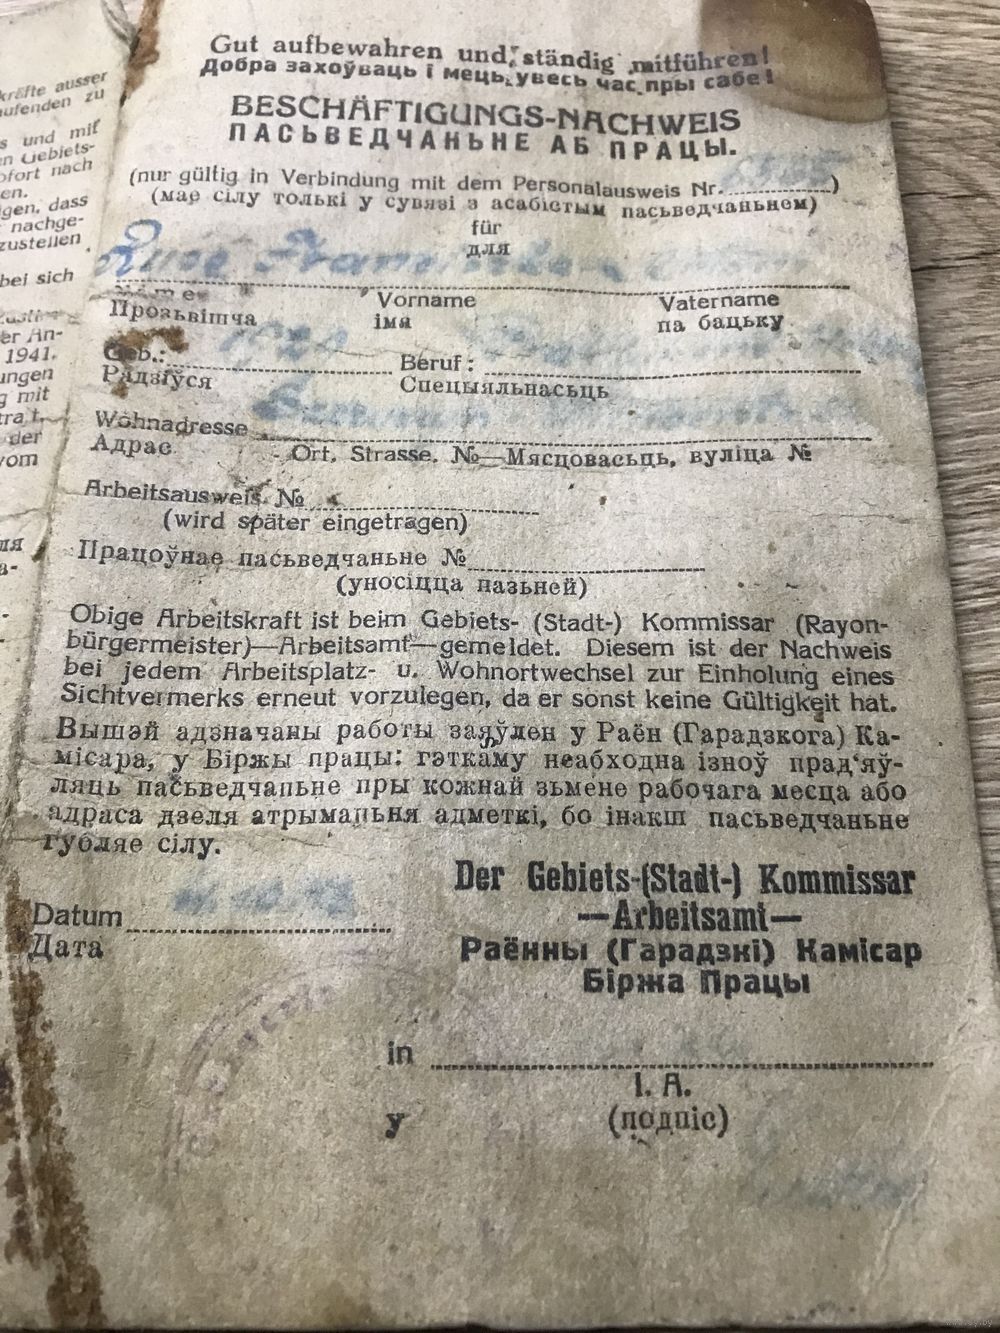 kräfte ausser
laufenden zu
s und mit
en Gebiets-
ofort nach
en.
gen, dass
nachge-
zustellen
bei sich
er An-
1941.
ungen
g mit
der
vom
Gut aufbewahren und ständig mitführen!
Добра захоўваць і мець увесь час пры сабе!
BESCHÄFTIGUNGS-NACHWEIS
ПАСЬВЕДЧАНЬНЕ АБ ПРАЦЫ.
(nur gültig in Verbindung mit dem Personalausweis Nr. ............)
(мае сілу толькі у сувязі з асабістым пасьведчаньнем)
für
для
Name Vorname Vatername
Прозьвішча імя па бацьку
Geb.: 1920 Beruf:
Радзіўся Спецыяльнасьць
Wohnadresse
Адрас Ort, Strasse, №—Мясцовасьць, вуліца №
Arbeitsausweis №
(wird später eingetragen)
Працоўнае пасьведчаньне №
(уносіцца пазьней)
Obige Arbeitskraft ist beim Gebiets- (Stadt-) Kommissar (Rayon-
bürgermeister)—Arbeitsamt—gemeldet. Diesem ist der Nachweis
bei jedem Arbeitsplatz- u. Wohnortwechsel zur Einholung eines
Sichtvermerks erneut vorzulegen, da er sonst keine Gültigkeit hat.
Вышэй адзначаны работы заяўлен у Раён (Гарадзкога) Ка-
місара, у Біржы працы: гэткаму неабходна ізноў прад'яў-
ляць пасьведчаньне пры кожнай зьмене рабочага месца або
адраса дзеля атрыманьня адметкі, бо інакш пасьведчаньне
губляе сілу.
Der Gebiets-(Stadt-) Kommissar
—Arbeitsamt—
Datum
Дата
Раённы (Гарадзкі) Камісар
Біржа Працы
in
I. A.
у (подпіс)